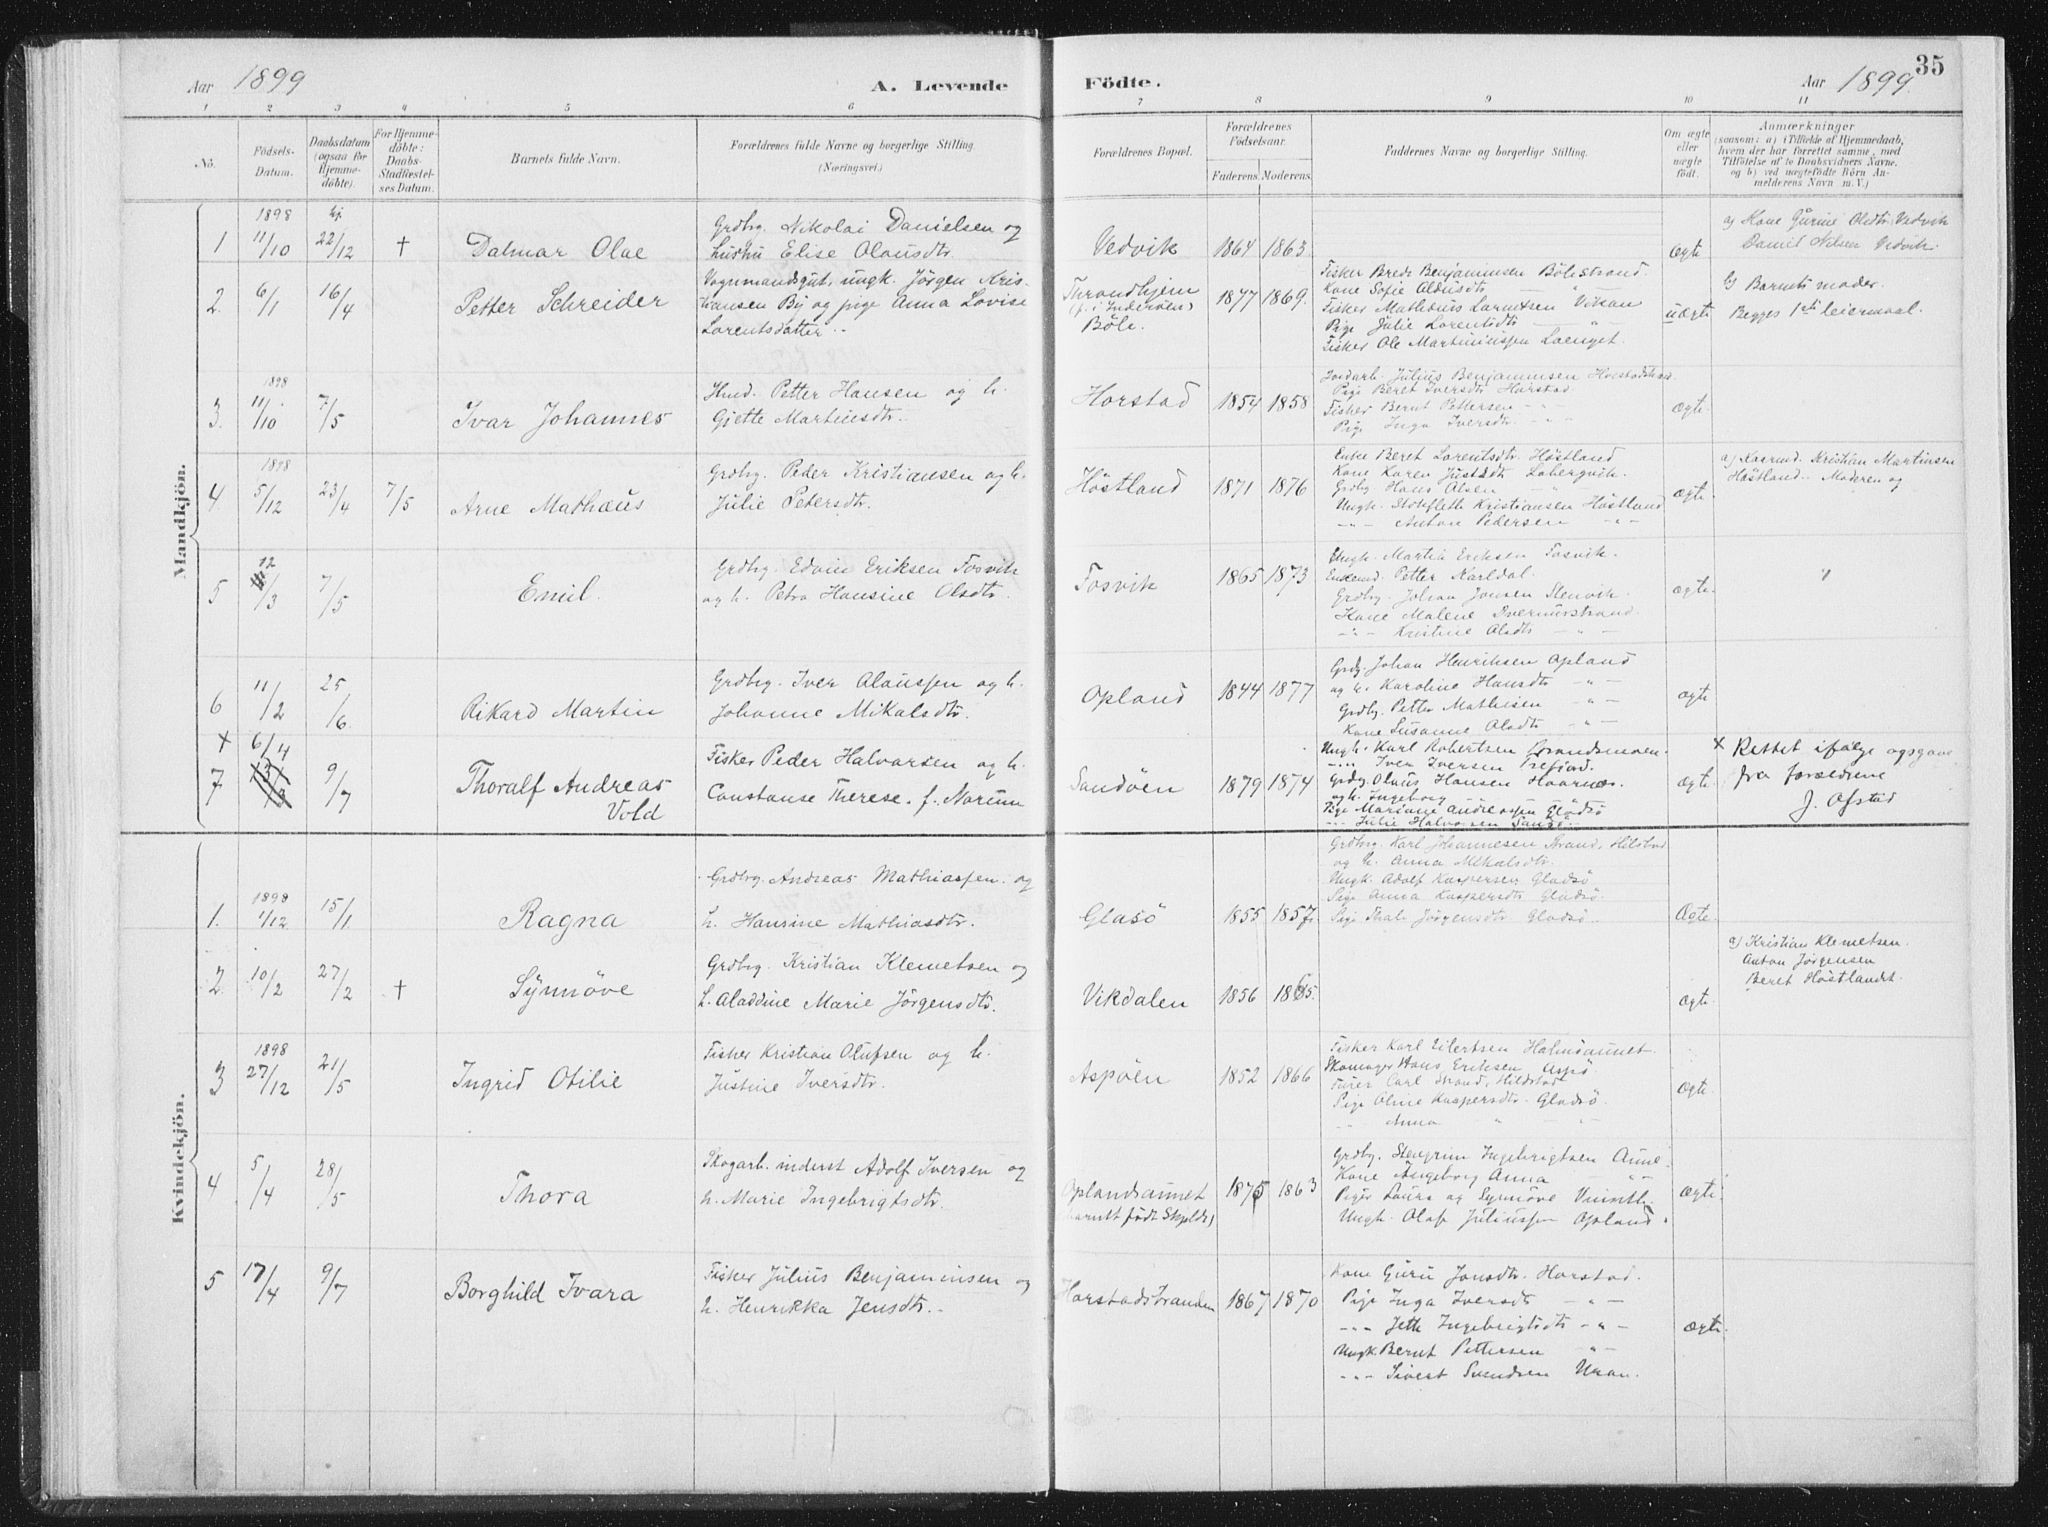 Aar 1899
A. Levende
Födte.
Aar 1899.
35
1 2 3 4 5 6 7 8 9 10 11
No.
Födsels-
Datum.
Daabsdatum
(ogsaa før
Hjemme-
döbte).
For Hjemme-
döbte:
Daabs-
Stadfæstel-
ses Datum.
Barnets fulde Navn.
Forældrenes fulde Navne og borgerlige Stilling.
(Næringsvei.)
Forældrenes Bopæl.
Forældrenes
Födselsaar.
Faderens. Moderens.
Faddernes Navne og borgerlige Stilling.
Om ægte
eller
uægte
födt.
Anmærkninger
(saasom: a) i Tilfælde af Hjemmedaab,
hvem der har forrettet samme, med
Tilföielse af to Daabsvidners Navne,
og b) ved uægtefödte Börn An-
melderens Navn m. V.)
Mandkjön.
1
1898
11/10
hj.
22/12
+
Dalmar Olae
Grdbrg. Nikolai Danielsen og
hustru Elise Olausdtr.
Vedvik
1864 1863.
ægte
a) Kone Gurine Olsdtr. Vedvik
Daniel Nilsen Vedvik.
2.
6/1
16/4
Petter Schreider
Vognmandsgut, ungk. Jörgen Kris-
tiansen By og pige Anna Lovise
Lorentsdatter..
Throndhjem
(f. i Inderöen)
Böle.
1877 1869.
Fisker Brede Benjaminsen Bölestrand.
Kone Sofie Aldusdtr —"—
Fisker Mathæus Larentsen Vikan
Pige Julie Lorentsdtr — " —
Fisker Ole Martiniussen Laenget.
uægte
b) Barnets moder.
Begges 1ste leiermaal.
3.
1898
11/10
7/5
Ivar Johannes
Hmd. Petter Hansen og h.
Gjette Martinsdtr.
Horstad
1854 1858
Jordarb. Julius Benjaminsen Horstadstrand.
Pige Beret Iversdtr. Horstad
Fisker Bernt Pettersen -"-
Pige Inga Iversdtr. -"-
ægte.
4
1898
5/12
23/4
7/5
Arne Mathæus
Grdbrg. Peder Kristiansen og h.
Julie Petersdtr.
Höstland
1871 1876
Enke Beret Lorentsdtr. Höstland
Kone Karen Justsdtr Labergvik.
Grdbrg Hans Olsen "
Ungk. Stokfleth Kristiansen Höstland
-"- Anton Pedersen -"-
ægte.
a) Kaarmd. Kristian Martinsen
Höstland.. Moderen og
5
12
/3
7/5
Emil.
Grdbrg. Edvin Eriksen Fosvik
og h. Petra Hansine Olsdtr.
Fosvik
1865 1873
Ungk. Martin Eriksen Fosvik.
Enkemd. Petter Karldal.
Grdbrg. Johan Jonsen Stenvik.
Kone Malene Dvernesstrand.
-"- Kristine Olsdtr — " —
ægte.
6
11/2
25/6
Rikard Martin
Grdbrg. Iver Olaussen og h.
Johanne Mikalsdtr.
Opland
1844 1877
Grdbr. Johan Henriksen Opland
og h. Karoline Hansdtr -"-
Grdbrg. Petter Mathisen -"-
Kone Susanne Olsdtr -"-
ægte
+
7
6/4
9/7
Thoralf Andreas
Vold
Fisker Peder Halvorsen og h.
Constanse Therese. f. Norum
Sandöen
1879 1874
Ungk. Karl Robertsen Strandsmoen.
-"- Iver Iversen Trefjord.
Grdbrg. Olaus Hansen Haarnes.
og h. Ingeborg
Pige Mariane Andreassen Gladsö
-"- Julie Halvorsen Sandö.
ægte.
× Rettet ifølge opgave
fra forældrene
J. Ofstad
Kvindekjön.
1.
1898
1/12
15/1
Ragna
Grdbrg. Andreas Mathiassen. og
h. Hansine Mathiasdtr.
Glasö
1855 1857.
Grdbrg. Karl Johannesen Strand, Hilstad
og h. Anna Mikalsdtr.
Ungk. Adolf Kaspersen Gladsö
Pige Anna Kaspersdtr Gladsö.
Pige Thale Jörgensdtr Gladsö.
Ægte.
2.
10/2
27/2
+
Synnöve
Grdbrg. Kristian Klemetsen og
h. Aladdine Marie Jörgensdtr.
Vikdalen
1856 1865.
ægte.
a) Kristian Klemetsen.
Anton Jørgensen
Beret Höstlandt.
3
1898
27/12
21/5
Ingrid Otilie
Fisker Kristian Olufsen og h.
Justine Iversdtr.
Aspöen
1852 1866
Fisker Karl Eilertsen Halmöaunet.
Skomager Hans Eriksen Aspö.
Furer Carl Strand, Hildstad
Pige Oline Kaspersdtr. Gladsö.
-"- Anna " -"-
ægte.
4
5/4
28/5
Thora
Skogarb. inderst Adolf Iversen og
h. Marie Ingebrigtsdtr.
Oplandsaunet
(barnet födt Skjelds)
1875 1863
Grdbrg. Stengrim Ingebrigtsen Aune.
Kone Ingeborg Anna -"-
Piger Laura og Synnöve
Ungk. Olaf Juliussen Opland.
ægte.
5
17/4
9/7
Borghild Ivara
Fisker Julius Benjaminsen og
h. Henrikka Jensdtr.
Horstadstranden
1867 1870
Kone Guru Jonsdtr. Horstad.
Pige Inga Iversdtr -"-
-"- Jette Ingebrigtsdtr -"-
Ungk. Bernt Pettersen -"-
-"- Sivert Svendsen Uran.
ægte.